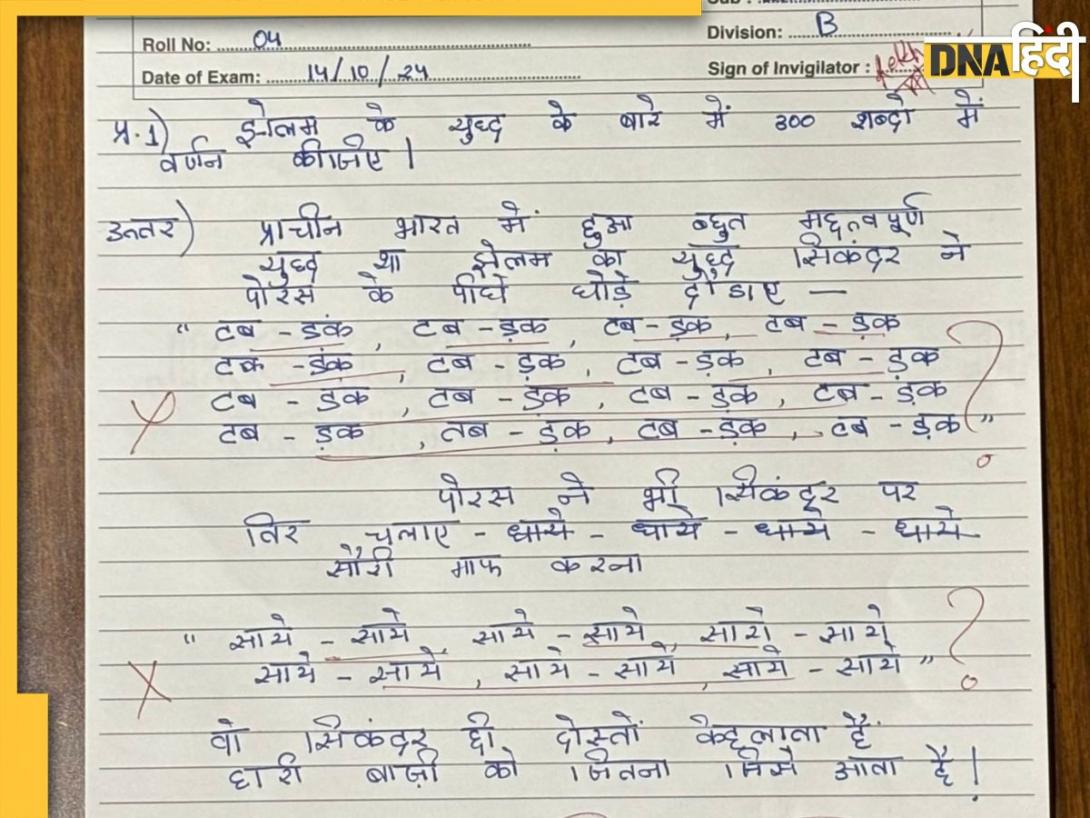 Roll No: 04
Division: B
DNA हिंदी
Date of Exam: 14/10/24
Sign of Invigilator :
प्र.1) झेलम के युध्द के बारे में 300 शब्दो में
वर्णन कीजिए |
उत्तर) प्राचीन भारत में हुआ बहुत महत्वपूर्ण
युध्द था झेलम का युध्द सिकंदर ने
पोरस के पीछे घोड़े दौडाए —
" टब - डंक , टब - ड़क , टब - ड़क , टब - ड़क
टक - डंक , टब - ड़क , टब - ड़क , टब - ड़क
टब - डक , टब - ड़क , टब - ड़क , टब - ड़क
टब - ड़क , तब - ड़क , टब - ड़क , टब - ड़क "
?
पोरस ने भी सिकंदर पर
तिर चलाए - धाये - धाये - धाये - धाये
सौरी माफ करना
" साये - साये, साये - साये, साये - साये
साये - साये , साये - साये , साये - साये "
?
वो सिकंदर ही दोस्तों केहलाता है
हारी बाज़ी को जितना जिसे आता है !